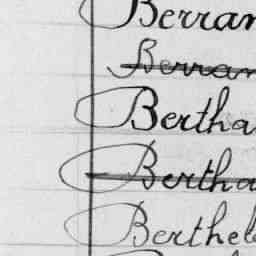 Berran
Berran
Bertha
Bertha
Berthel